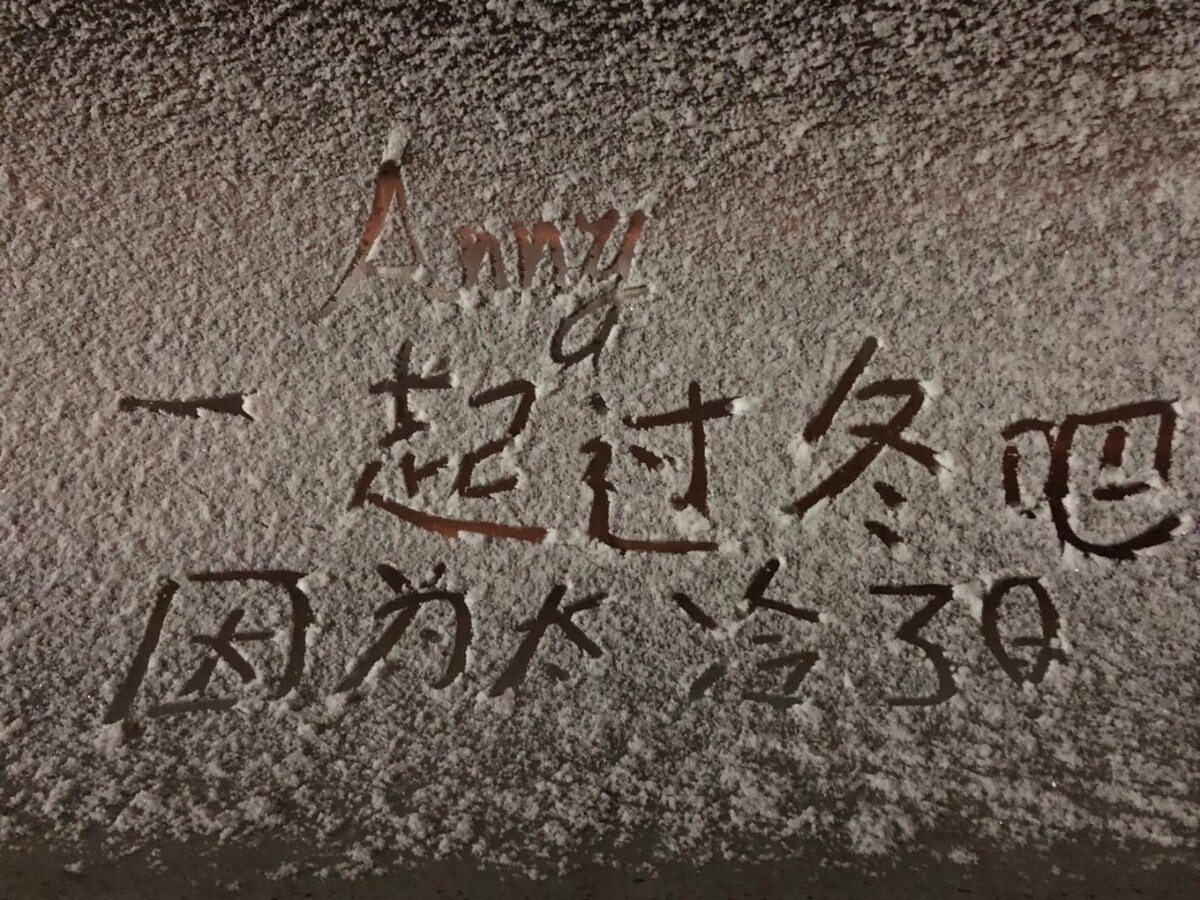 Anny
一起过冬吧
因为太冷了Q